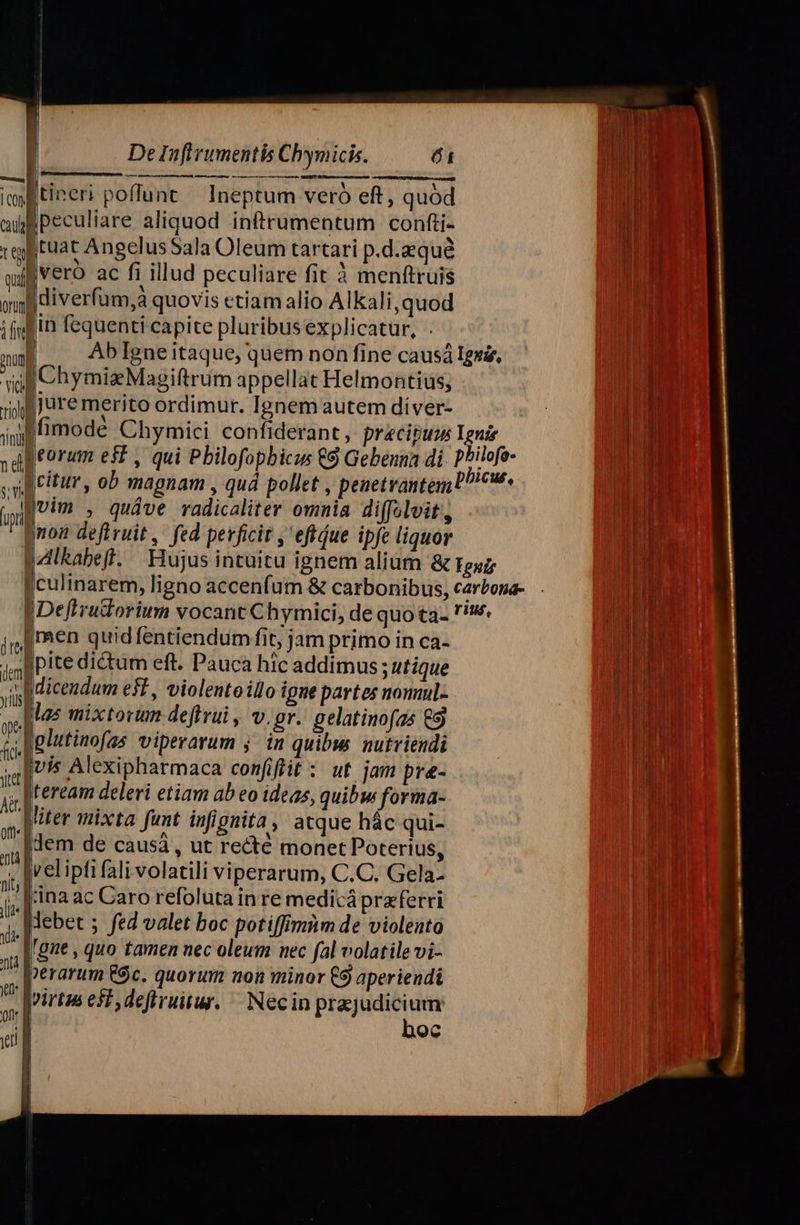 De Inſtrumentis Chymicis. 61
tineri poſſunt Ineptum verò eſt, quòd
peculiare aliquod inſtrumentum conſti-
tuat Angelus Sala Oleum tartari p.d. æquè
verò ac ſi illud peculiare ſit à menſtruis
diverſum, à quovis etiam alio Alkali, quod
in ſequenti capite pluribus explicatur.
Ab Igne itaque, quem non ſine causâ Ignis.
Chymiæ Magiſtrum appellat Helmontius,
jure merito ordimur. Ignem autem diver-
ſimodè Chymici conſiderant, præcipuus Ignis
eorum eſt, qui Philoſophicus & Gehenna di- philoſo-
citur, ob magnam, quâ pollet, penetrantem phicus.
vim, quâve radicaliter omnia diſſolvit,
non deſtruit, ſed perficit, eſtque ipſe liquor
Alkaheſt. Hujus intuitu ignem alium & Ignis
culinarem, ligno accenſum & carbonibus, carbona-
Deſtructorium vocant Chymici, de quo ta- rius.
men quid ſentiendum ſit, jam primo in ca-
pite dictum eſt. Pauca hîc addimus; utique
dicendum eſt, violento illo igne partes nonnul-
las mixtorum deſtrui, v.gr. gelatinoſas &
glutinoſas viperarum; in quibus nutriendi
vis Alexipharmaca conſiſtit: ut jam præ-
teream deleri etiam ab eo ideas, quibus forma-
liter mixta ſunt inſignita, atque hâc qui-
dem de causâ, ut rectè monet Poterius,
vel ipſi ſali volatili viperarum, C.C. Gela-
tina ac Caro reſoluta in re medicâ præferri
debet; ſed valet hoc potiſſimùm de violento
igne, quo tamen nec oleum nec ſal volatile vi-
perarum &c. quorum non minor & aperiendi
virtus eſt, deſtruitur. Nec in præjudicium
hoc